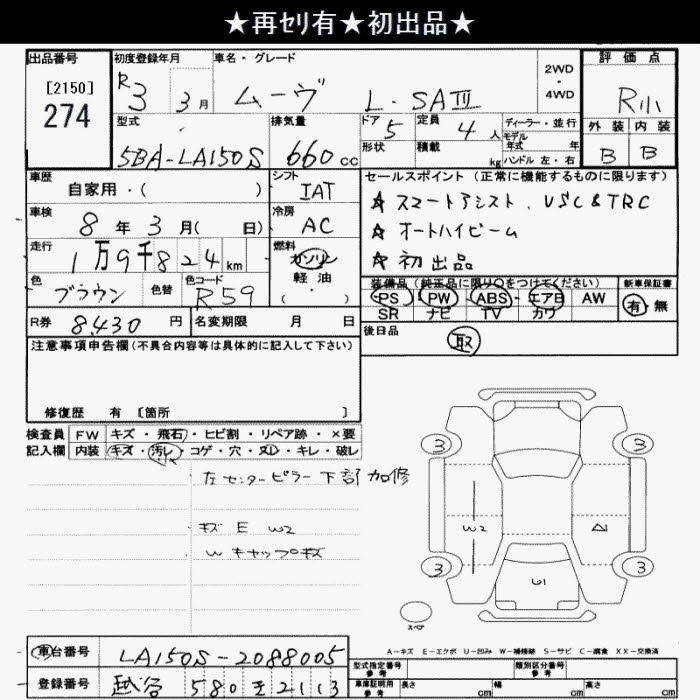 ★再ｾﾘ有★初出品★
出品番号
[2150]
274
初度登録年月
R3 3月
車名・グレード
ムーヴ L・SAⅢ
2WD
・
4WD
評価点
R小
外装 内装
B B
型式
5BA-LA150S
排気量
660cc
ドア 5
形状
定員 4人
積載 kg
ディーラー・並行
モデル年式 年
ハンドル 左・右
車歴
自家用・( )
シフト
IAT
車検
8年3月( 日)
冷房
AC
走行
1万9千824km
燃料
ガソリン
軽油
( ・ )
色
ブラウン
色替
色コード
R59
R券 8430円
名変期限 月 日
セールスポイント(正常に機能するものに限ります)
★スマートアシスト、VSC&TRC
★オートハイビーム
★初出品
装備品(純正品に限り○をつけてください)
PS PW ABS エアB AW
SR ナビ TV カワ
新車保証書
有・無
後日品
取
注意事項申告欄(不具合内容等は具体的に記入して下さい)
修復歴 有 [箇所 ]
検査員記入欄
FW キズ・飛石・ヒビ割・リペア跡・×要
内装 キズ・汚レ・コゲ・穴・ヌレ・キレ・破レ
左センターピラー下部加修
キズ E W2
Wキャップキズ
3 3
W2
3 3
スペア
A-キズ E-エクボ U-凹み W-補修跡 S-サビ C-腐食 XX-交換済
車台番号 LA150S-2088005
登録番号 越谷 580 を 2113
型式指定番号 参考
類別区分番号 参考
車庫証明用 参考
長さ cm
幅 cm
高さ cm